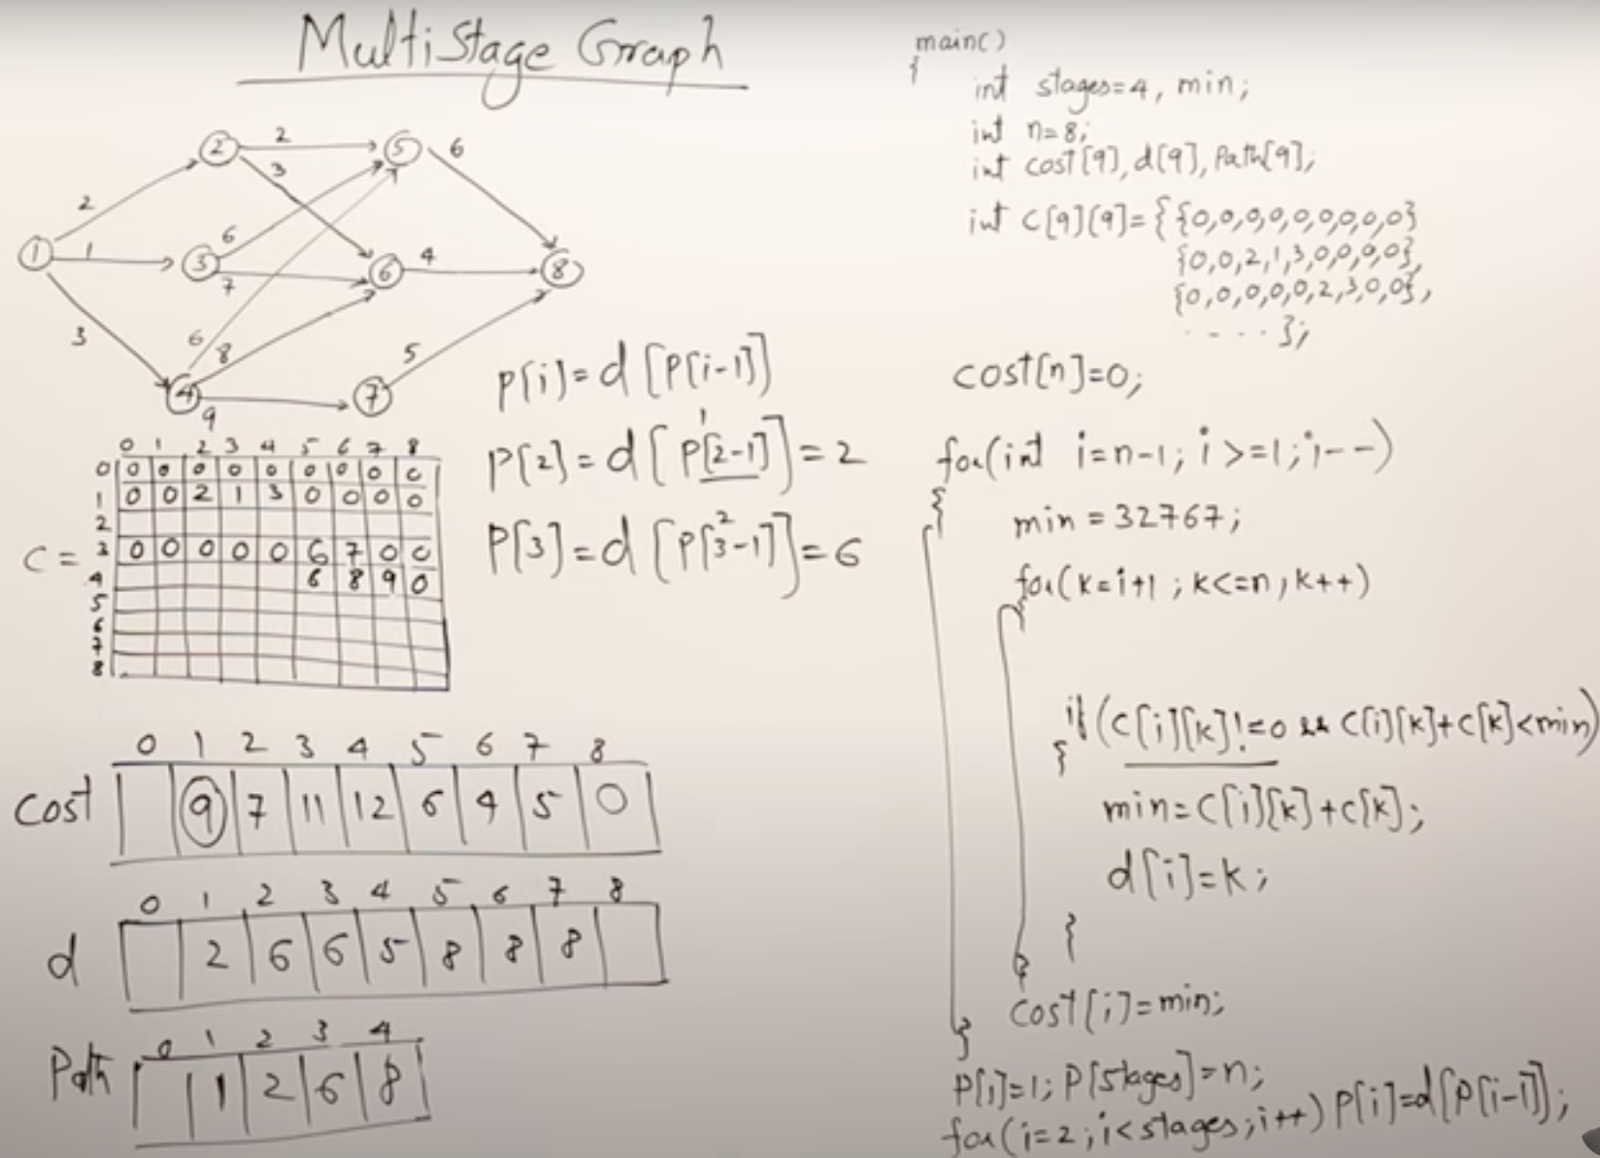 MultiStage Graph
2
5
2
6
3
2
6
1
1
3
7
6
4
8
3
6
8
5
4
9
7
P[i]=d[P[i-1]]
1
P[2]=d[P[2-1]]=2
2
P[3]=d[P[3-1]]=6
0 1 2 3 4 5 6 7 8
0 0 0 0 0 0 0 0 0 0
1 0 0 2 1 3 0 0 0 0
2
C = 3 0 0 0 0 0 6 7 0 0
4 6 8 9 0
5
6
7
8
0 1 2 3 4 5 6 7 8
Cost 9 7 11 12 6 4 5 0
0 1 2 3 4 5 6 7 8
d 2 6 6 5 8 8 8
0 1 2 3 4
Path 1 2 6 8
main()
{
int stages=4, min;
int n=8;
int cost[9], d[9], Path[9];
int C[9][9]={{0,0,0,0,0,0,0,0,0}
{0,0,2,1,3,0,0,0,0},
{0,0,0,0,0,2,3,0,0},
....};
cost[n]=0;
for(int i=n-1; i>=1; i--)
{
min = 32767;
for(k=i+1; k<=n; k++)
{
if(C[i][k]!=0 && C[i][k]+C[k]<min)
{
min=C[i][k]+C[k];
d[i]=k;
}
}
cost[i]=min;
}
P[1]=1; P[stages]=n;
for(i=2; i<stages; i++) P[i]=d[P[i-1]];